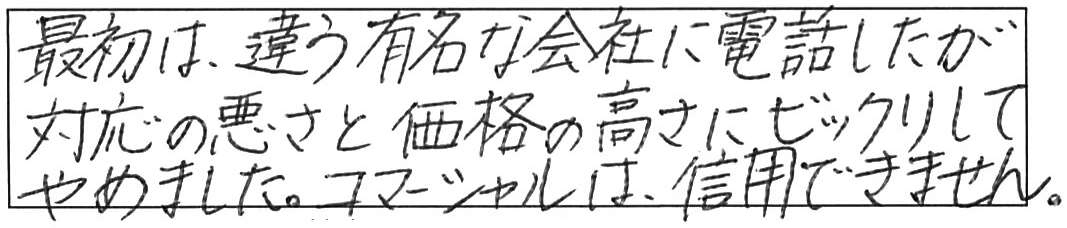 最初は、違う有名な会社に電話したが
対応の悪さと価格の高さにビックリして
やめました。コマーシャルは、信用できません。